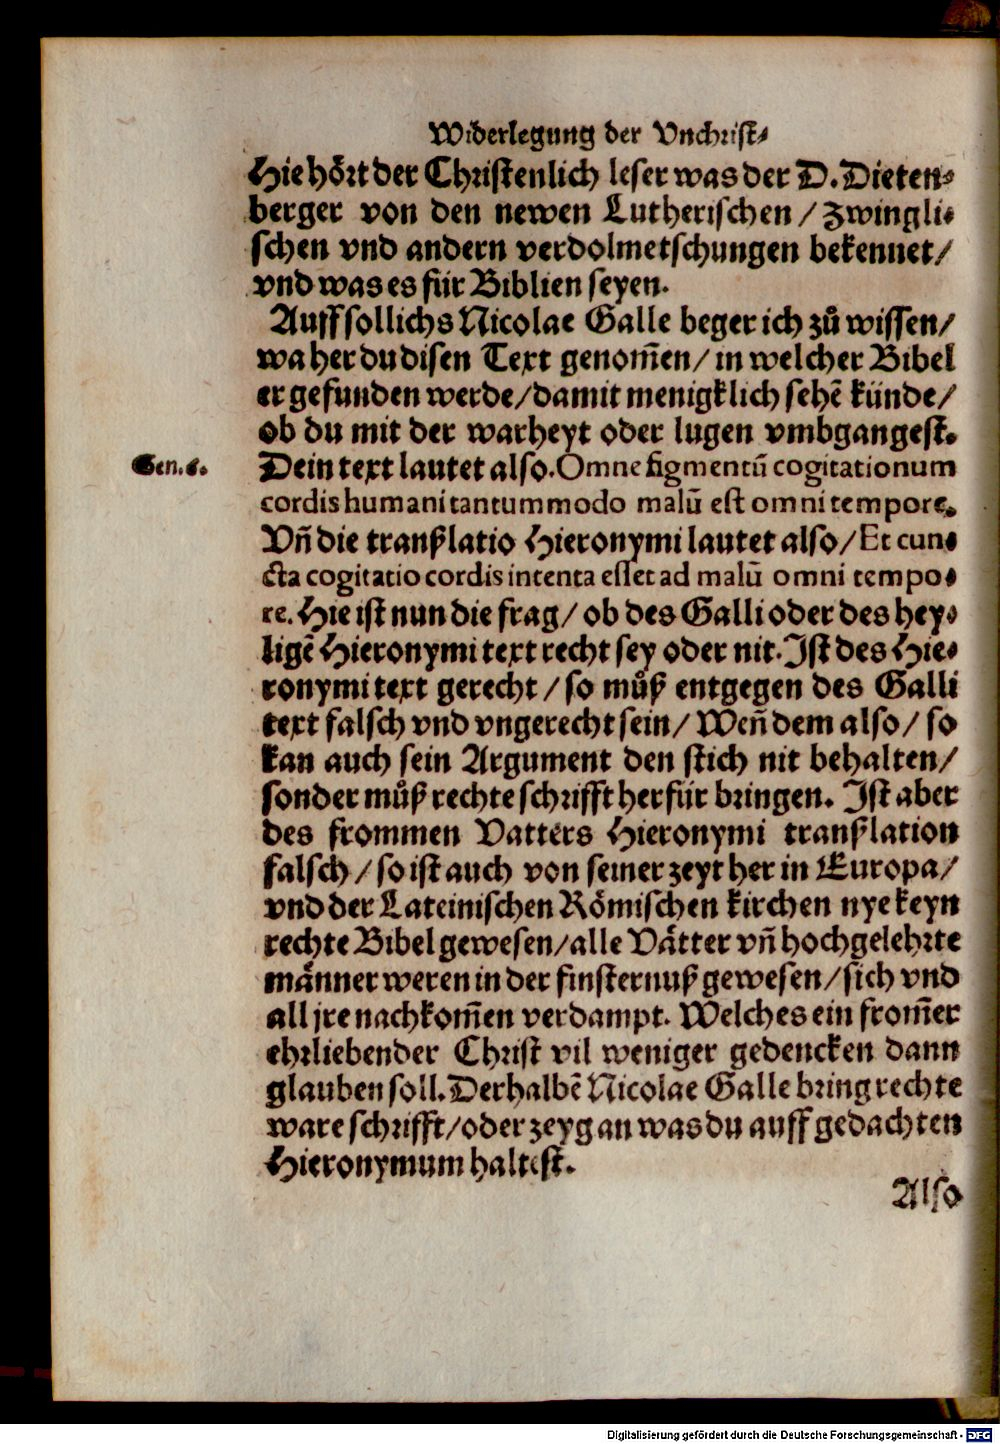 Widerlegung der Vnchrist⸗
Hie hört der Christenlich leser was der D. Dieten⸗
berger von den newen Lutherischen / Zwingli⸗
schen vnd andern verdolmetschungen bekennet /
vnd was es für Biblien seyen.
Auff sollichs Nicolae Galle beger ich zů wissen /
wa her du disen Text genom̃en / in welcher Bibel
er gefunden werde / damit menigklich sehẽ künde /
ob du mit der warheyt oder lugen vmbgangest.
Gen. 6.
Dein text lautet also. Omne figmentũ cogitationum
cordis humani tantummodo malũ est omni tempore.
Vñ die tranßlatio Hieronymi lautet also / Et cun⸗
cta cogitatio cordis intenta esset ad malũ omni tempo⸗
re. Hie ist nun die frag / ob des Galli oder des hey⸗
ligẽ Hieronymi text recht sey oder nit. Ist des Hie⸗
ronymi text gerecht / so můß entgegen des Galli
text falsch vnd vngerecht sein / Weñ dem also / so
kan auch sein Argument den stich nit behalten /
sonder můß rechte schrifft herfür bringen. Ist aber
des frommen Vatters Hieronymi tranßlation
falsch / so ist auch von seiner zeyt her in Europa /
vnd der Lateinischen Römischen kirchen nye keyn
rechte Bibel gewesen / alle Vätter vñ hochgelehrte
männer weren in der finsternuß gewesen / sich vnd
all jre nachkom̃en verdampt. Welches ein from̃er
ehrliebender Christ vil weniger gedencken dann
glauben soll. Derhalbẽ Nicolae Galle bring rechte
ware schrifft / oder zeyg an was du auff gedachten
Hieronymum haltest.
Also
Digitalisierung gefördert durch die Deutsche Forschungsgemeinschaft - DFG